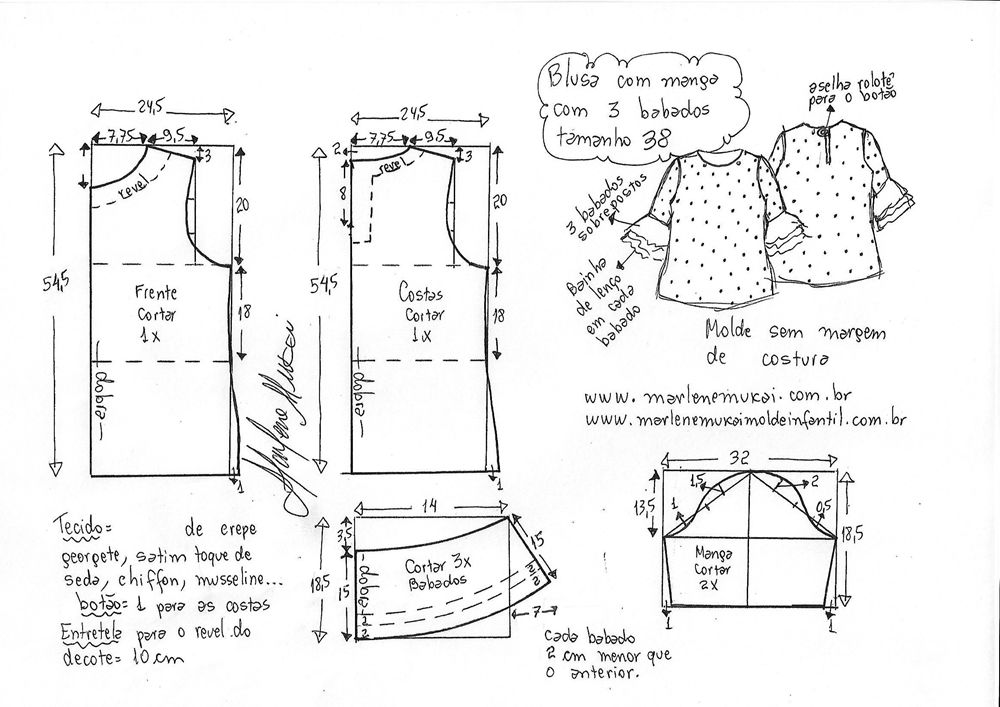 Blusa com manga
com 3 babados
tamanho 38
aselha rolotê
para o botão
3 babados
sobrepostos
Bainha
de lenço
em cada
babado
Molde sem margem
de costura
www.marlenemukai.com.br
www.marlenemukaimoldeinfantil.com.br
24,5
7,75
9,5
3
revel
20
54,5
Frente
Cortar
1x
18
dobra
1
Marlene Mukai
24,5
7,75
9,5
2
3
revel
8
20
54,5
Costas
Cortar
1x
18
dobra
1
Tecido= de crepe
georgete, satim toque de
seda, chiffon, musseline...
botão= 1 para as costas
Entretela para o revel do
decote= 10 cm
14
3,5
18,5
15
15
Cortar 3x
Babados
dobra
2
2
2
2
7
Cada babado
2 cm menor que
o anterior.
32
1,5
2
1
0,5
13,5
18,5
Manga
Cortar
2x
1
1